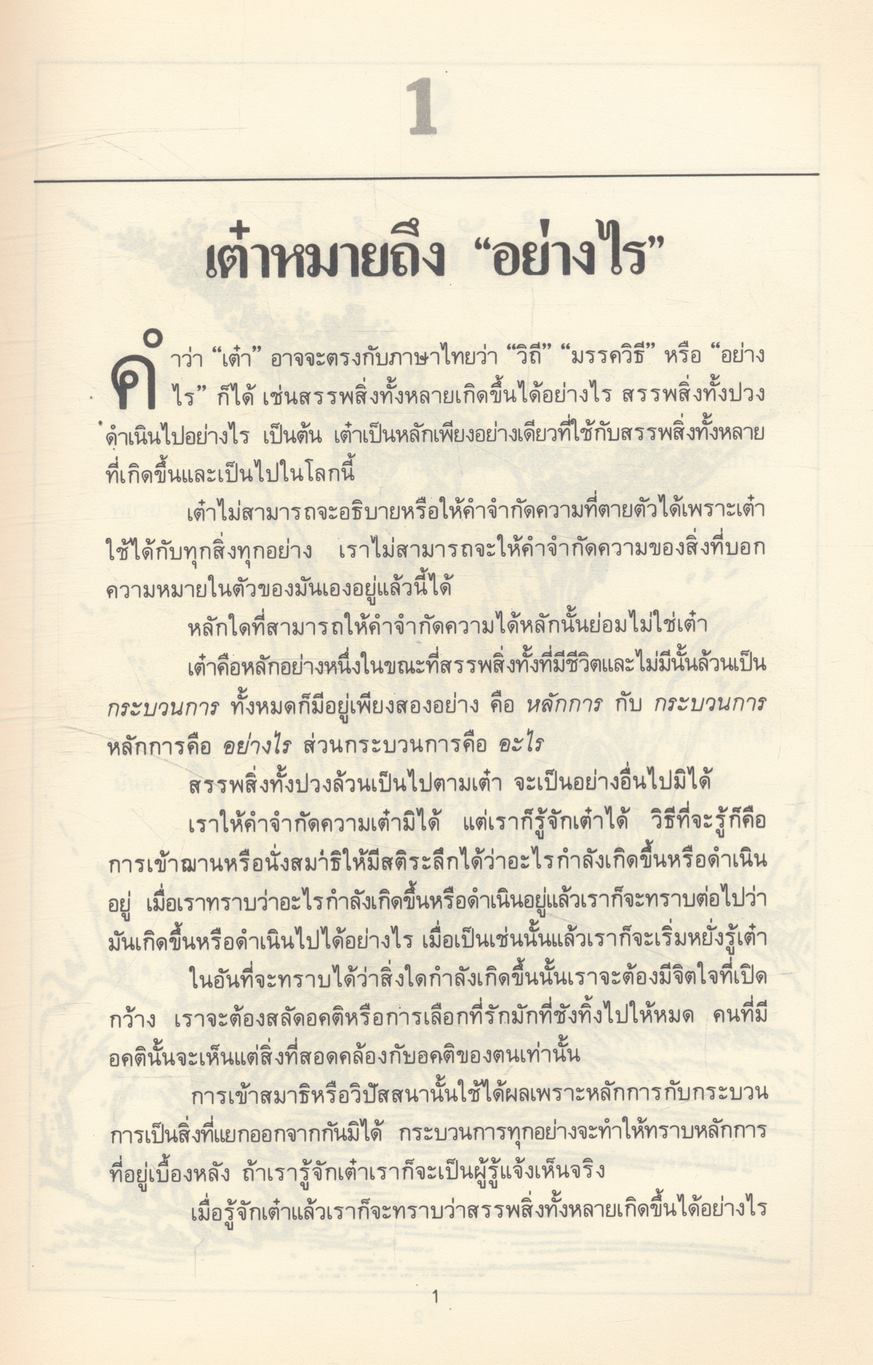 1
เต๋าหมายถึง “อย่างไร”
คำว่า “เต๋า” อาจจะตรงกับภาษาไทยว่า “วิถี” “มรรควิธี” หรือ “อย่าง
ไร” ก็ได้ เช่นสรรพสิ่งทั้งหลายเกิดขึ้นได้อย่างไร สรรพสิ่งทั้งปวง
ดำเนินไปอย่างไร เป็นต้น เต๋าเป็นหลักเพียงอย่างเดียวที่ใช้กับสรรพสิ่งทั้งหลาย
ที่เกิดขึ้นและเป็นไปในโลกนี้
เต๋าไม่สามารถจะอธิบายหรือให้คำจำกัดความที่ตายตัวได้เพราะเต๋า
ใช้ได้กับทุกสิ่งทุกอย่าง เราไม่สามารถจะให้คำจำกัดความของสิ่งที่บอก
ความหมายในตัวของมันเองอยู่แล้วนี้ได้
หลักใดที่สามารถให้คำจำกัดความได้หลักนั้นย่อมไม่ใช่เต๋า
เต๋าคือหลักอย่างหนึ่งในขณะที่สรรพสิ่งทั้งที่มีชีวิตและไม่มีนั้นล้วนเป็น
กระบวนการ ทั้งหมดก็มีอยู่เพียงสองอย่าง คือ หลักการ กับ กระบวนการ
หลักการคือ อย่างไร ส่วนกระบวนการคือ อะไร
สรรพสิ่งทั้งปวงล้วนเป็นไปตามเต๋า จะเป็นอย่างอื่นไปมิได้
เราให้คำจำกัดความเต๋ามิได้ แต่เราก็รู้จักเต๋าได้ วิธีที่จะรู้ก็คือ
การเข้าฌานหรือนั่งสมาธิให้มีสติระลึกได้ว่าอะไรกำลังเกิดขึ้นหรือดำเนิน
อยู่ เมื่อเราทราบว่าอะไรกำลังเกิดขึ้นหรือดำเนินอยู่แล้วเราก็จะทราบต่อไปว่า
มันเกิดขึ้นหรือดำเนินไปได้อย่างไร เมื่อเป็นเช่นนั้นแล้วเราก็จะเริ่มหยั่งรู้เต๋า
ในอันที่จะทราบได้ว่าสิ่งใดกำลังเกิดขึ้นนั้นเราจะต้องมีจิตใจที่เปิด
กว้าง เราจะต้องสลัดอคติหรือการเลือกที่รักมักที่ชังทิ้งไปให้หมด คนที่มี
อคตินั้นจะเห็นแต่สิ่งที่สอดคล้องกับอคติของตนเท่านั้น
การเข้าสมาธิหรือวิปัสสนานั้นใช้ได้ผลเพราะหลักการกับกระบวน
การเป็นสิ่งที่แยกออกจากกันมิได้ กระบวนการทุกอย่างจะทำให้ทราบหลักการ
ที่อยู่เบื้องหลัง ถ้าเรารู้จักเต๋าเราก็จะเป็นผู้รู้แจ้งเห็นจริง
เมื่อรู้จักเต๋าแล้วเราก็จะทราบว่าสรรพสิ่งทั้งหลายเกิดขึ้นได้อย่างไร
1